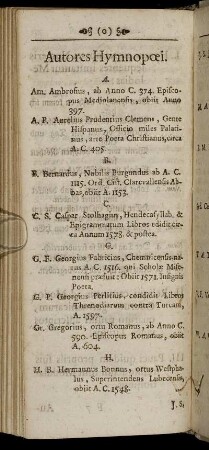 (o)
Autores Hymnopœi.
A.
Am. Ambrosius, ab Anno C. 374. Episco-
pus Mediolanensis, obiit Anno
397.
A. P. Aurelius Prudentius Clemens, Gente
Hispanus, Officio miles Palati-
nus, arte Poeta Christianus, circa
A. C. 405.
B.
B. Bernardus, Nobilis Burgundus ab A. C.
1115. Ord. Cist. Clarevallensis Ab-
bas, obiit A. 1153.
C.
C. S. Caspar Stolhagius, Hendecasyllab. &
Epigrammatum Libros edidit cir-
ca Annum 1578. & postea.
G.
G. F. Georgius Fabricius, Chemnicensis na-
tus A. C. 1516. qui Scholæ Mis-
nensis præfuit: Obiit 1571. Insignis
Poeta.
G. P. Georgius Perlitius, condidit Librū
Threnodiarum contra Turcam,
A. 1597.
Gr. Gregorius, ortu Romanus, ab Anno C.
590. Episcopus Romanus, obiit
A. 604.
H.
H. B. Hermannus Bonnus, ortus Westpha-
lus, Superintendens Lubecensis,
obiit A. C. 1548.
J. S.